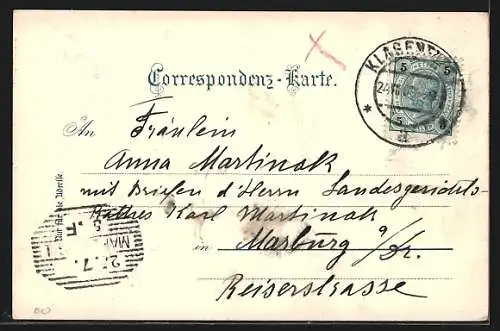 Correspondenz-Karte.
KLAGENF
5 5
5 5
An Fräulein
Anna Martinak
mit Briefen d'Herrn Landesgerichts-
Rathes Karl Martinak
in Marburg a/Dr.
Reiserstrasse
Nur für die Adresse.
MAR
5.F
25.7.